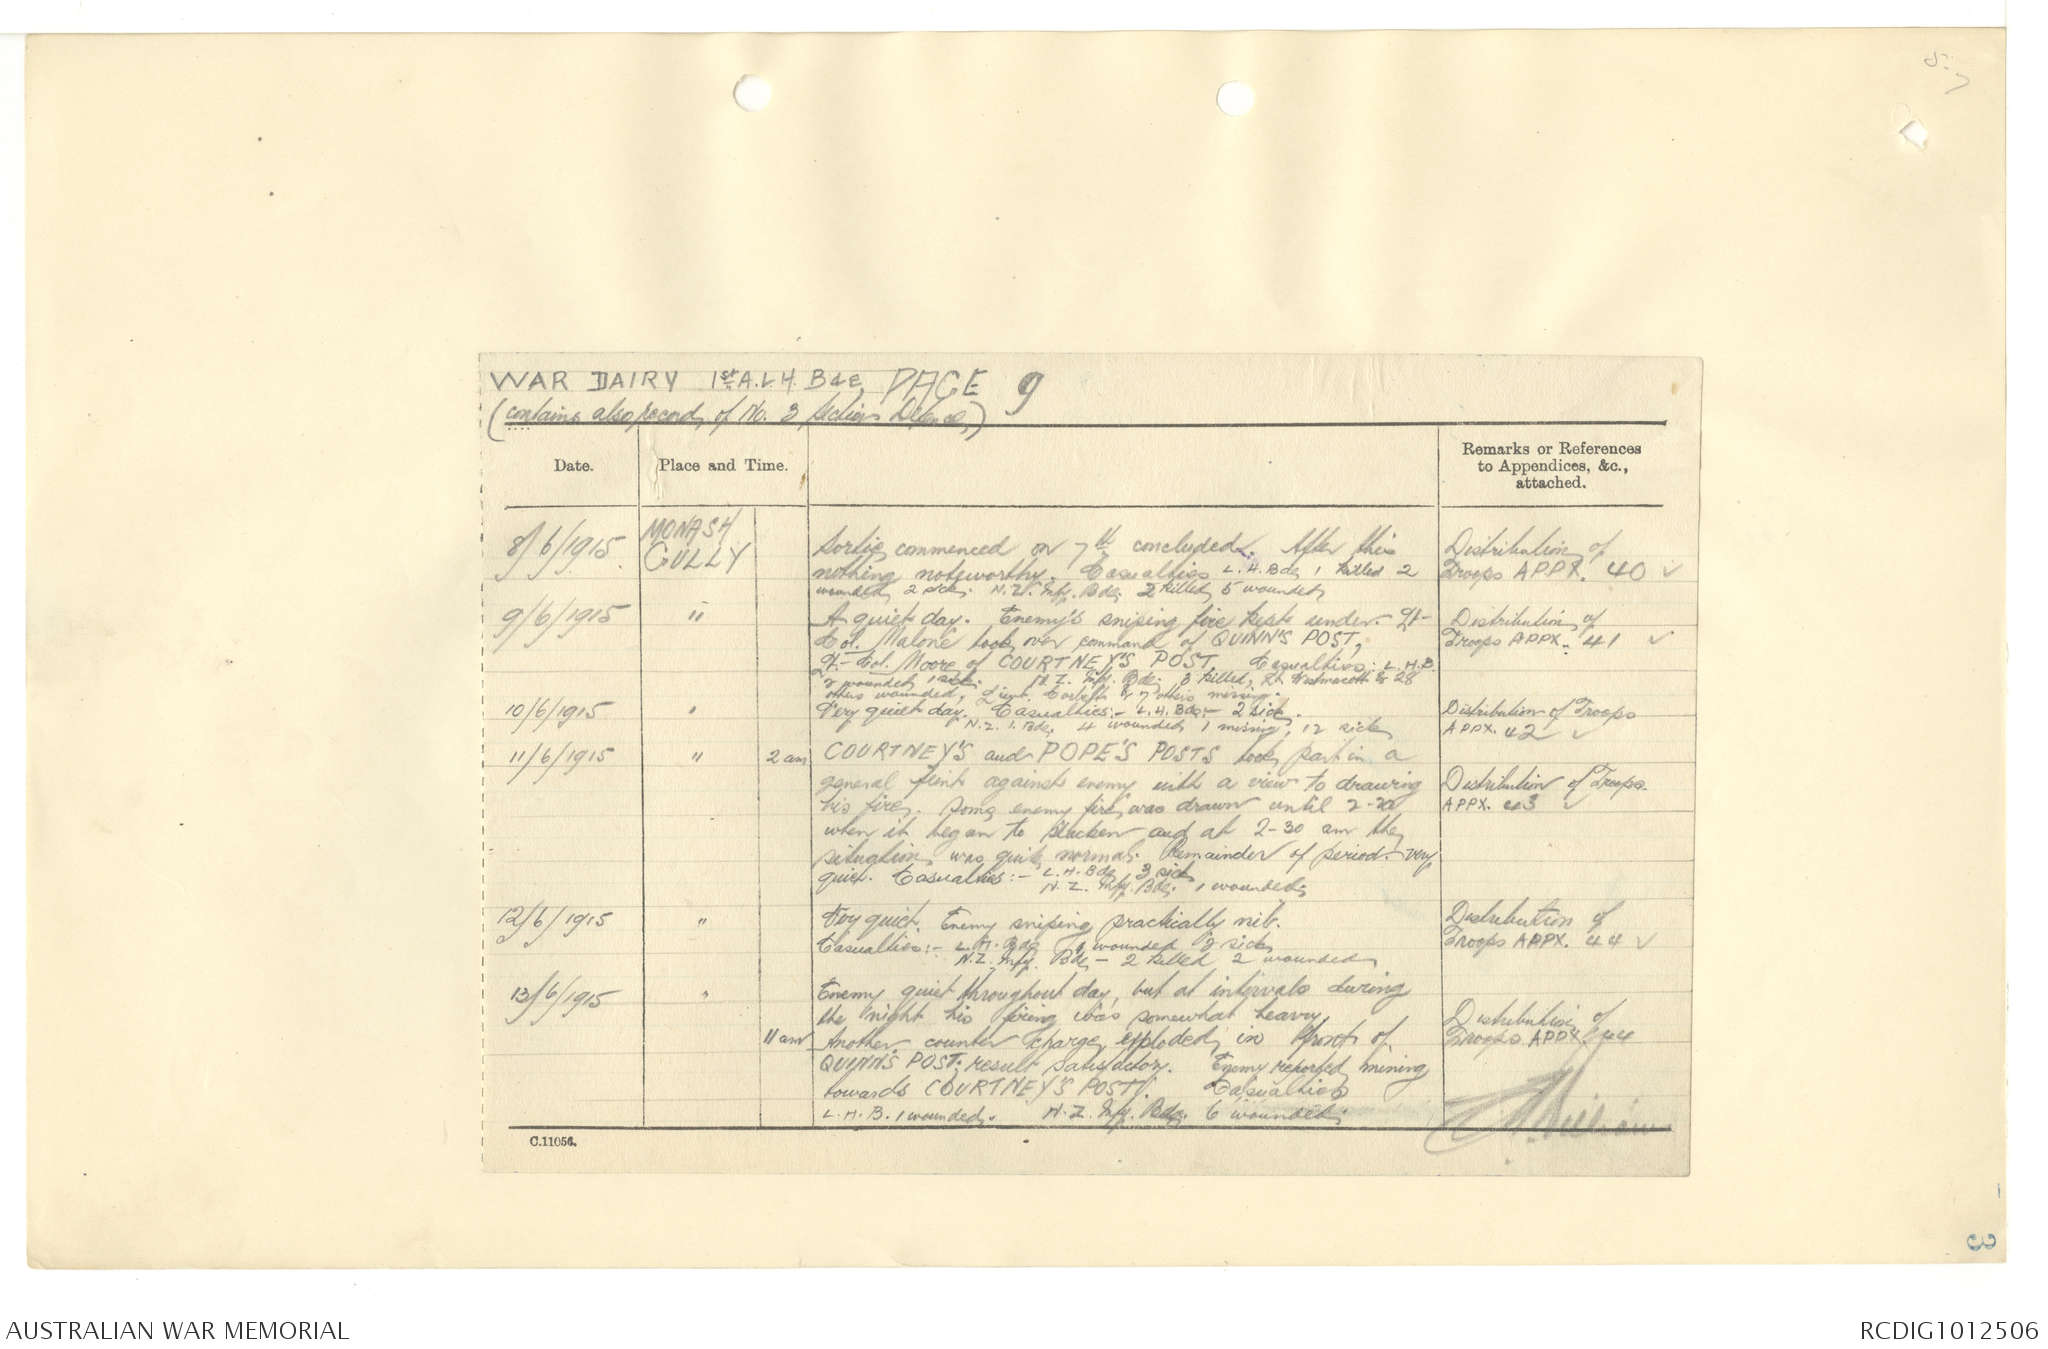 WAR DAIRY 1st A.L.H. Bde, PAGE 9
(contains also records of No. 3 Section Defence,)
Date. Place and Time. Remarks or References to Appendices, &c., attached.
8/6/1915 MONASH GULLY Sortie commenced on 7th concluded. After this Distribution of
nothing noteworthy. Casualties L.H. Bde, 1 killed 2 Troops APPX. 40 ✓
wounded, 2 sick. N.Z. Inf. Bde. 2 killed, 5 wounded,
9/6/1915 " A quiet day. Enemy's sniping fire kept under. Lt- Distribution of
Col. Malone took over command of QUINN'S POST, Troops APPX. 41 ✓
Lt.- Col. Moore of COURTNEY'S POST. Casualties: L.H.B.
2 wounded, 1 sick. N.Z. Inf. Bde. 3 killed, Lt. Westmacott & 28
others wounded, Lieut. & 7 others missing.
10/6/1915 " Very quiet day. Casualties:- L.H. Bde:- 2 sick. Distribution of Troops
N.Z. I. Bde, 4 wounded, 1 missing, 12 sick APPX. 42 ✓
11/6/1915 " 2 am COURTNEY'S and POPE'S POSTS took part in a
general feint against enemy with a view to drawing Distribution of Troops.
his fire. Some enemy fire was drawn until 2-20 APPX. 43 ✓
when it began to slacken and at 2-30 am the
situation was quite normal. Remainder of period very
quiet. Casualties:- L.H. Bde 3 sick
N.Z. Inf. Bde. 1 wounded.
12/6/1915 " Very quiet. Enemy sniping practically nil. Distribution of
Casualties:- L.H. Bde 1 wounded 2 sick, Troops APPX. 44 ✓
N.Z. Inf. Bde - 2 killed 2 wounded
13/6/1915 " Enemy quiet throughout day, but at intervals during
the night his firing was somewhat heavy. Distribution of
11 am Another counter charge exploded in front of Troops APPX 44
QUINN'S POST: result satisfactory. Enemy reported mining
towards COURTNEY'S POST. Casualties
L.H.B. 1 wounded. N.Z. Inf. Bde. 6 wounded.
C.11056.
3
AUSTRALIAN WAR MEMORIAL RCDIG1012506